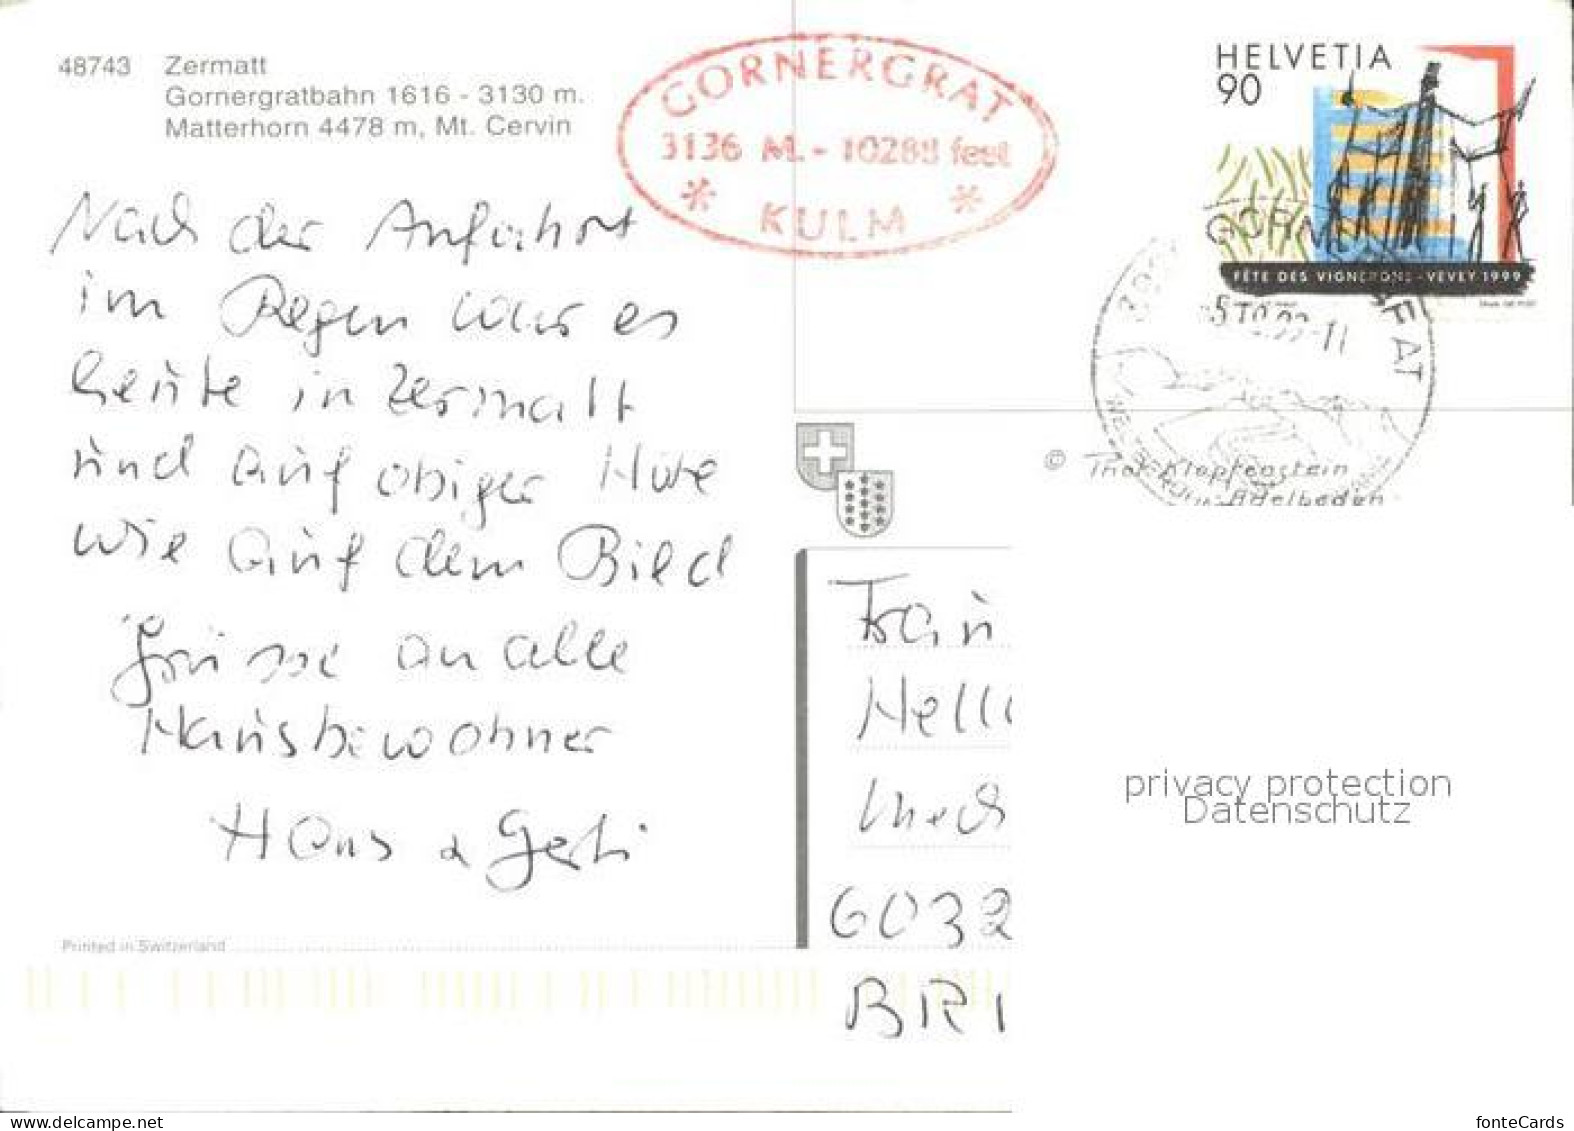 48743 Zermatt
Gornergratbahn 1616 - 3130 m.
Matterhorn 4478 m, Mt. Cervin
GORNERGRAT
3136 M. - 10288 feet
* KULM *
HELVETIA
90
FÊTE DES VIGNERONS - VEVEY 1999
Nach der Anfahrt
im Regen war es
heute in Zermatt
und auf obiger Höhe
wie auf dem Bild
Grüsse an alle
Hausbewohner
Hans & Gerti
Printed in Switzerland
© Klopfenstein
Adelboden
Frau
6032
BRI
privacy protection
Datenschutz
www.delcampe.net
fonteCards